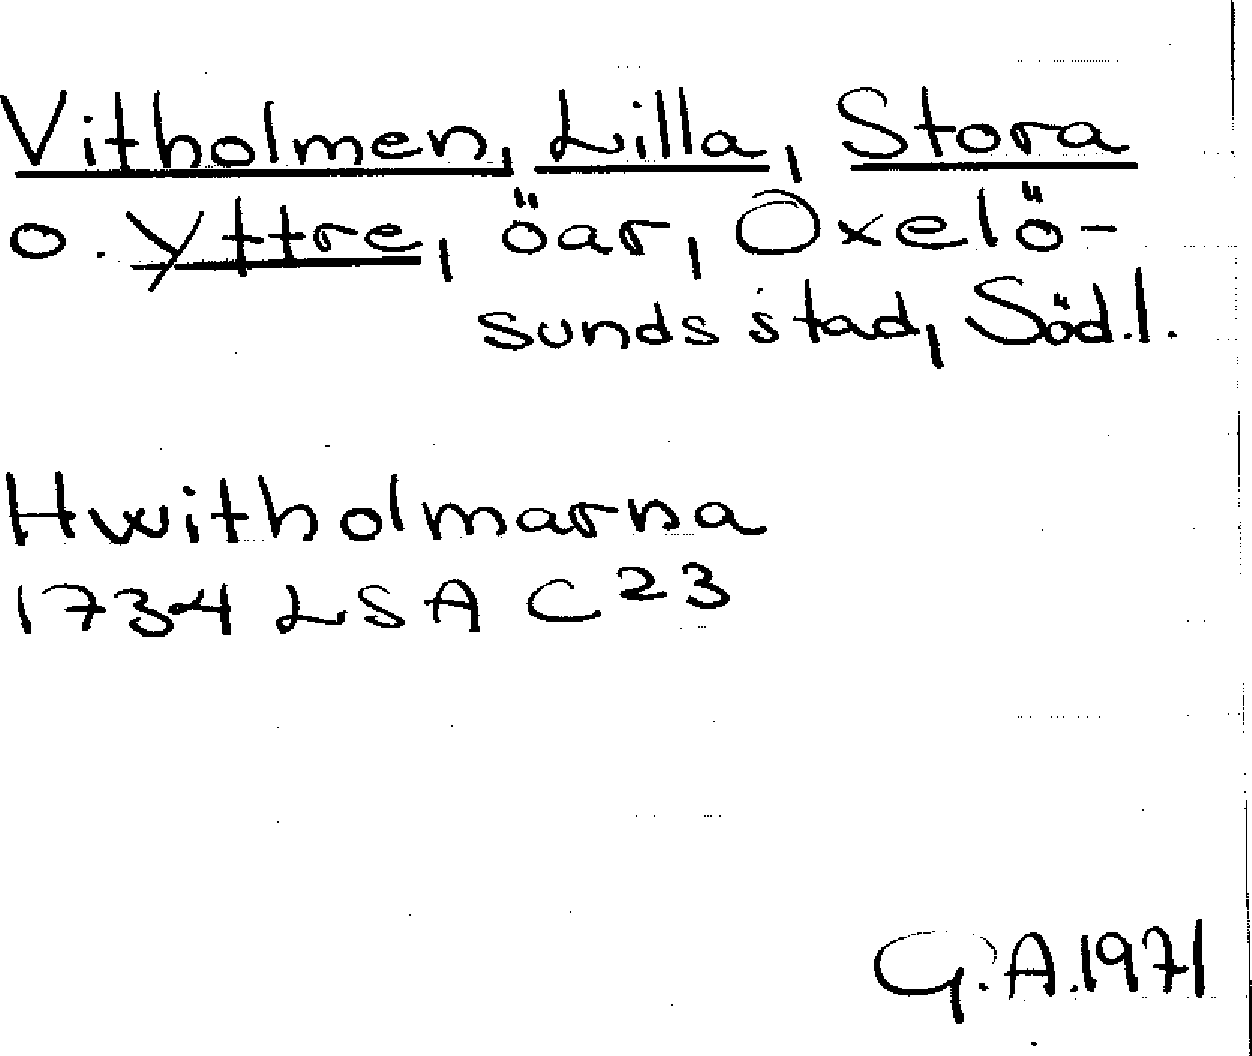 Vitholmen, Lilla, Stora
o. Yttre, öar, Oxelö-
sunds stad, Söd.l.
Hwitholmarna
1734 LSA C23
G.A.1971